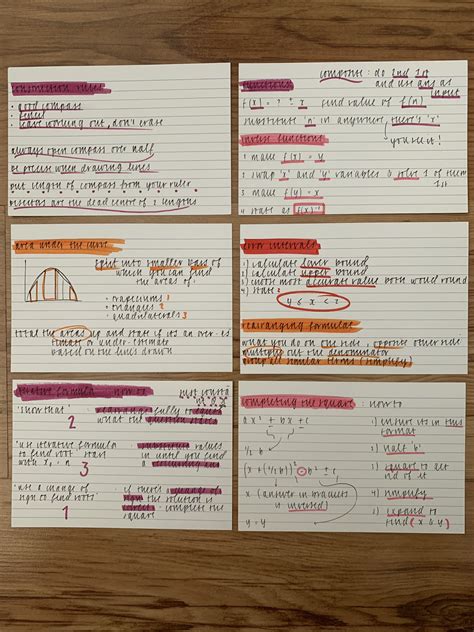 construction rules
· good compass
· pencil
· leave working out, don't erase
always open compass over half
be precise when drawing lines
put length of compass from your ruler
bisectors are the dead centre of 2 lengths
functions
composite : do 2nd 1st
and use ans as
input
f(x) = ? · x find value of f(n)
substitute 'n' in anywhere there's 'x'
you see it!
inverse functions
1 make f(x) = y
2 swap 'x' and 'y' variables & solve
3 make f(y) = x
4 state as f(x)⁻¹
area under the curve
split into smaller bars of
which you can find
the areas of:
• trapeziums 1
• triangles 2
• quadrilaterals 3
total the areas up and state if its an over-es
timate or under-estimate
based on the lines drawn
error intervals
1) calculate lower bound
2) calculate upper bound
3) choose most accurate value both would round
4) state:
rearranging formulae
what you do on one side, opposite other side
multiply out the denominator
group all similar terms (simplify)
iterative formula how to
'show that' rearrange fully to
what the question
2
'use iterative formula
to find root' start
with x₀ = n
3
substitute values
in until you find
a
'use a change of
sign to find roots'
1
if there's a change of
sign the solution is
correct
completing the square : how to
ax² + bx + c
1) insert its in this
format
2) half 'b'
(x + (½b))² - b² + c
3) square to get
rid of it
x = (answer in brackets
is inversed)
4) simplify
y = y
5) expand to
find (x & y)